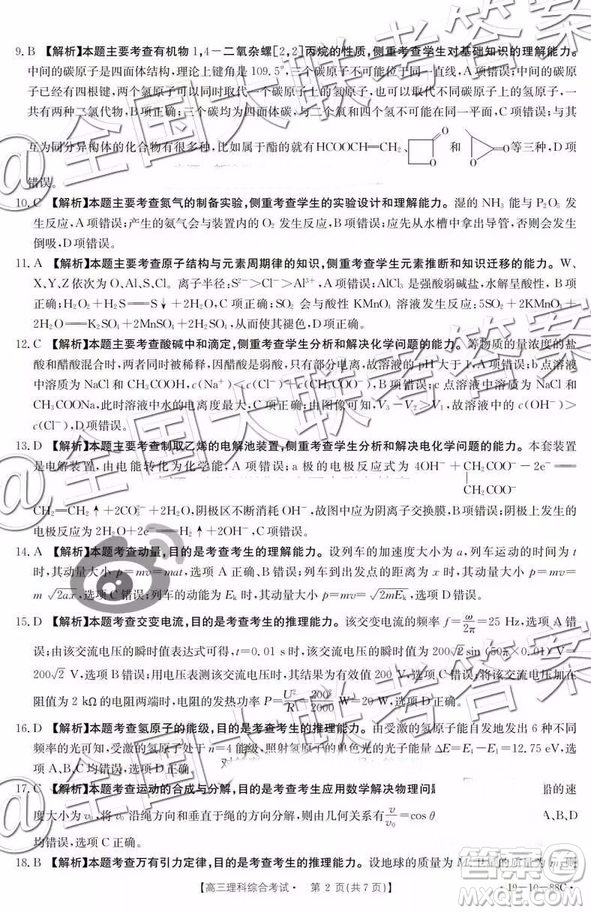 9. B 【解析】本题主要考查有机物 1,4-二氧杂螺[2,2]丙烷的性质,侧重考查学生对基础知识的理解能力。
中间的碳原子是四面体结构,理论上是 109.5°,因此四个碳原子不可能在一条直线上,A 项错误;中间的碳原子
已经没有氢原子,两个氯原子可以同时取代一个碳原子上的氢原子,也可以取代不同碳原子上的氢原子,一
共有两种二氯代物,B 项正确;三个碳均为四面体碳,与二个氧不可能在同一平面,C 项错误;与其
互为同分异构体的化合物有很多,比如属于酯的就有 HCOOCH=CH₂、 和 等三种,D 项
错误。
10. C 【解析】本题主要考查氮气的制备实验,侧重考查学生的实验设计和理解能力。湿的 NH₃ 能与 P₂O₅ 发
生反应,A 项错误;产生的氨气会与装置中的 O₂ 发生反应,B 项错误;氨气易从水槽中的导管导出,
D 项错误。
11. A 【解析】本题主要考查原子结构与元素周期律的知识,侧重考查学生元素推断和知识迁移的能力。W、
X、Y、Z 依次为 O、Al、S、Cl。离子半径:S²⁻>Cl⁻> Al³⁺,A 项正确;AlCl₃ 是强酸弱碱盐,水解呈酸
性,B 项错误;沸点:H₂O>H₂S,C 项错误;SO₂ 会与酸性 KMnO₄ 溶液发生反应:5SO₂+2KMnO₄+
2H₂O══K₂SO₄+2MnSO₄+2H₂SO₄,从而使溶液褪色,不是漂白,D 项错误。
12. C 【解析】本题主要考查酸碱中和滴定,侧重考查学生分析和解决化学问题的能力。等物质的量浓度的盐酸
和醋酸混合时,两者同时被稀释,因醋酸是弱酸,只有部分电离,故溶液的 pH 大于 1,A 项错误;b 点溶液
中溶质为 NaCl 和 CH₃COOH,c(Na⁺)<c(Cl⁻)+c(CH₃COO⁻),B 项错误;c 点溶液中溶质为 NaCl 和
CH₃COONa,此时溶液中水的电离度最大,C 项正确;由图像可知,X>V₁,a 点溶液显碱性,故 c(OH⁻)>
c(H⁺),D 项错误。
13. D 【解析】本题主要考查制取乙烯的电解池装置,侧重考查学生分析和解决电化学问题的能力。本套装置
是电解装置,A 项错误;a 的电极反应式为 4OH⁻+CH₂COO⁻—CH₂COO⁻−2e⁻══
CH₂=CH₂↑+2CO₃²⁻+2H₂O,阳极区不断消耗 OH⁻,所以溶液的 pH 减小,B、C 项错误;b 的
电极反应为 2H₂O+2e⁻══H₂↑+2OH⁻,D 项正确。
14. A 【解析】本题考查动量,目的是考查考生的理解能力。设列车的加速度大小为 a,列车运动的时间为 t
时,其动量大小 p=mv=mat,选项 A 正确、B 错误;列车到出发点的距离为 x 时,其动量大小 p=mv=
m√2ax,选项 C 错误;列车的动能为 Eₖ 时,其动量大小 p=mv=√2mEₖ,选项 D 错误。
15. D 【解析】本题考查交变电流,目的是考查考生的推理能力。该交变电流的频率 f=ω/2π=25 Hz,选项 A 错
误;由该交流电压的瞬时值表达式可得,t=0.01 s 时,该交流电压的瞬时值为 200√2 sin (50π×0.01) V=
200√2 V,选项 B 错误;用电压表测该交流电压时,其示数为有效值 200 V,选项 C 错误;将该交流电压加在
阻值为 2 kΩ 的电阻两端时,电阻的发热功率 P=U²/R=200²/2000 W=20 W,选项 D 正确。
16. D 【解析】本题考查氢原子的能级,目的是考查考生的推理能力。由受激的氢原子能自发地发出 6 种不同
频率的光可知,受激的氢原子处于 n=4 能级,照射氢原子的单色光的光子能量 ΔE=E₄−E₁=12.75 eV,选
项 A、B、C 均错误,选项 D 正确。
17. C 【解析】本题考查运动的合成与分解,目的是考查考生应用数学解决物理问
沿的速
度大小为 v₀,将 v 沿绳方向和垂直于绳的方向分解,则由几何关系有 v/v₀=cosθ
A、B、D
均错误。
18. B 【解析】本题考查万有引力定律,目的是考查考生的推理能力。设地球的质量为 M,卫星的质量为 m,则
【高三理科综合考试·第 2 页(共 7 页)】
·19-10-88C·
@全国大联考答案